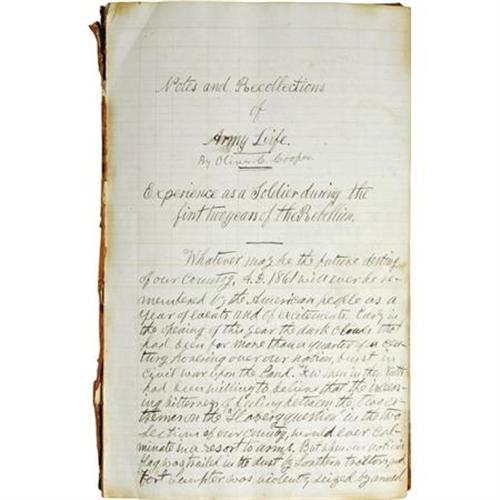 Notes and Recollections
of
Army Life.
By Oliver C. Cooper
Experience as a Soldier during the
first two years of the Rebellion.
Whatever may be the future destiny
of our Country, A.D. 1861 will ever be re-
membered by the American people as a
year of events and of excitements. Early in
the opening of this year the dark clouds that
had been for more than a quarter of a cen-
tury hovering over our nation, burst in
civil war upon the Land. Few men in the North
had been willing to believe that the increas-
ing bitterness of feeling between the two ex-
tremes on the "Slavery question" in the two
sections of our Country, would ever cul-
minate in a resort to arms. But when our nation's
flag was trailed in the dust by Southern traitors, and
Fort Sumpter was violently seized by armed